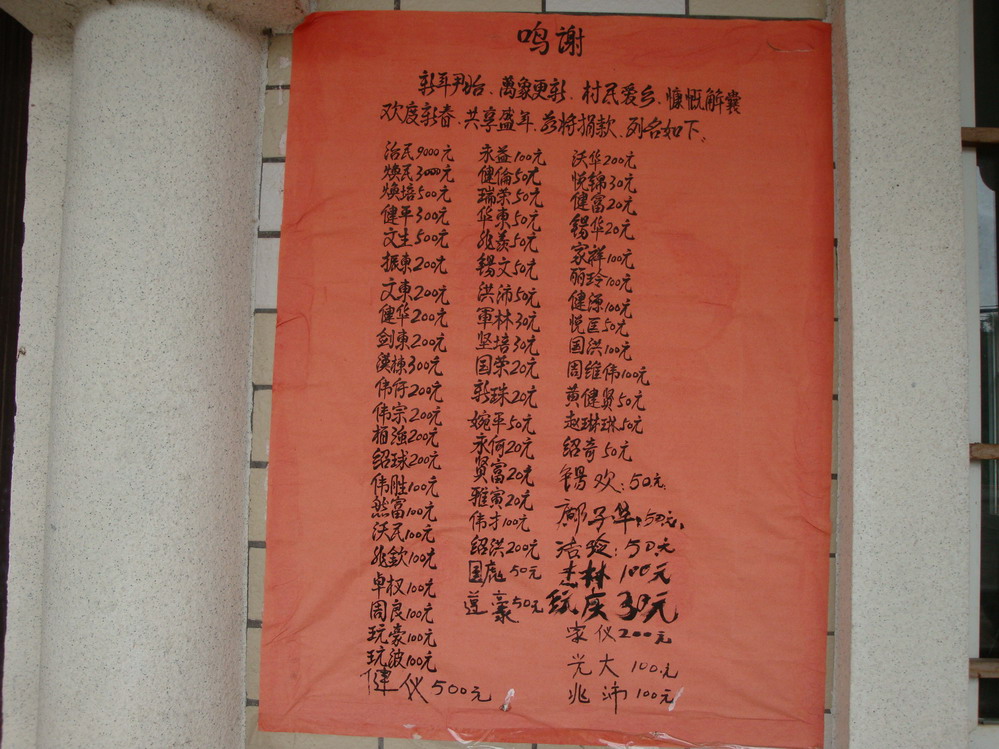 鸣谢
新年尹始、萬象更新、村民爱乡、慷慨解囊
欢度新春、共享盛年、兹将捐款、列名如下、
治民9000元
焕民3000元
焕培500元
健平300元
文生500元
振東200元
文東200元
健华200元
剑東200元
漢棟300元
伟仔200元
伟宗200元
栢强200元
绍球200元
伟胜100元
然富100元
沃民100元
兆欽100元
卓权100元
周良100元
玩豪100元
玩波100元
健仪500元
永益100元
健倫50元
瑞荣50元
华東50元
兆羨50元
锡文50元
洪沛50元
軍林30元
坚培30元
国荣20元
新珠20元
婉平50元
永何20元
贤富20元
雅寅20元
伟才100元
绍洪200元
国彪50元
莲豪50元
沃华200元
悦锦30元
健富20元
锡华20元
家祥100元
丽玲100元
健源100元
悦匡50元
国洪100元
周维伟100元
黄健贤50元
赵琳琳50元
绍奇50元
锡欢:50元
鄺子华:50元
洁玲:50元
杰林100元
玩庆30元
家仪200元
光大100元
兆沛100元